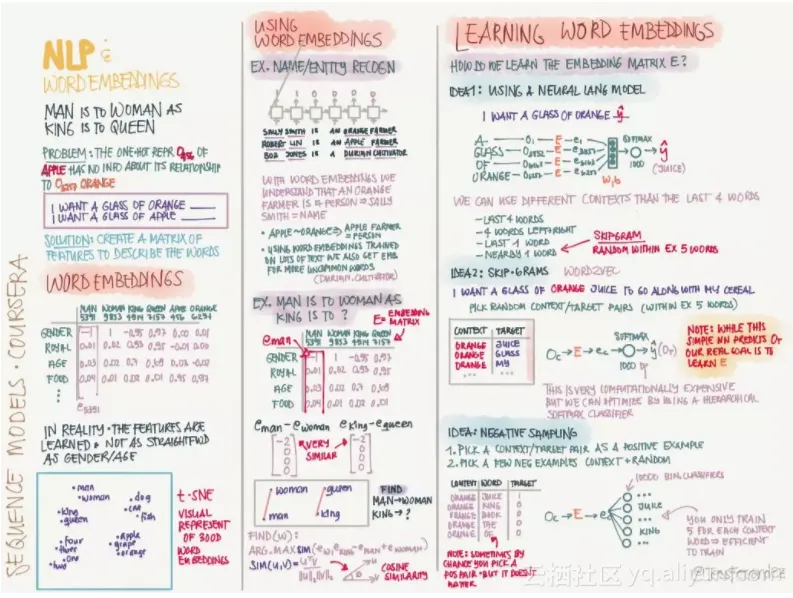 SEQUENCE MODELS · COURSERA
NLP &
WORD EMBEDDINGS
MAN IS TO WOMAN AS
KING IS TO QUEEN
PROBLEM: THE ONE-HOT REPR O456 OF
APPLE HAS NO INFO ABOUT ITS RELATIONSHIP
TO O6257 ORANGE
I WANT A GLASS OF ORANGE ____
I WANT A GLASS OF APPLE ____
SOLUTION: CREATE A MATRIX OF
FEATURES TO DESCRIBE THE WORDS
WORD EMBEDDINGS
MAN WOMAN KING QUEEN APPLE ORANGE
5391 9853 4914 7157 456 6257
GENDER -1 1 -0.95 0.97 0.00 0.01
ROYAL 0.01 0.02 0.93 0.95 -0.01 0.00
AGE 0.03 0.02 0.7 0.69 0.03 -0.02
FOOD 0.04 0.01 0.02 0.01 0.95 0.97
...
e5391
IN REALITY · THE FEATURES ARE
LEARNED & NOT AS STRAIGHTFWD
AS GENDER/AGE
man
woman
dog
cat
fish
king
queen
four
three
one
two
apple
grape
orange
t-SNE
VISUAL
REPRESENT
OF 300D
WORD
EMBEDDINGS
USING
WORD EMBEDDINGS
EX. NAME/ENTITY RECOGN
1 1 0 0 0 0
SALLY SMITH IS AN ORANGE FARMER
ROBERT LIN IS AN APPLE FARMER
BOB JONES IS A DURIAN CULTIVATOR
WITH WORD EMBEDDINGS WE
UNDERSTAND THAT AN ORANGE
FARMER IS A PERSON ⇒ SALLY
SMITH = NAME
• APPLE ~ ORANGE ⇒ APPLE FARMER
= PERSON
• USING WORD EMBEDDINGS TRAINED
ON LOTS OF TEXT WE ALSO GET EMB
FOR MORE UNCOMMON WORDS
(DURIAN, CULTIVATOR)
EX. MAN IS TO WOMAN AS
KING IS TO ?
E = EMBEDDING
MATRIX
eman
MAN WOMAN KING QUEEN
5391 9853 4914 7157
GENDER -1 1 -0.95 0.97
ROYAL 0.01 0.02 0.93 0.95
AGE 0.03 0.02 0.7 0.69
FOOD 0.04 0.01 0.02 0.01
eman - ewoman eking - equeen
-2 0 0 0
VERY
SIMILAR
-2 0 0 0
woman queen
man king
FIND
MAN→WOMAN
KING→?
FIND(W):
ARG.MAX SIM(ew, eking - eman + ewoman)
SIM(U,V) = UᵀV / ||U||₂||V||₂
COSINE
SIMILARITY
LEARNING WORD EMBEDDINGS
HOW DO WE LEARN THE EMBEDDING MATRIX E?
IDEA1: USING A NEURAL LANG MODEL
I WANT A GLASS OF ORANGE ŷ
A — O1 — E — e1
GLASS — E
OF — E
ORANGE — E
W,b
SOFTMAX
1000
ŷ
(JUICE)
WE CAN USE DIFFERENT CONTEXTS THAN THE LAST 4 WORDS
- LAST 4 WORDS
- 4 WORDS LEFT/RIGHT
- LAST 1 WORD
- NEARBY 1 WORD
SKIPGRAM
RANDOM WITHIN EX 5 WORDS
IDEA2: SKIP-GRAMS WORD2VEC
I WANT A GLASS OF ORANGE JUICE TO GO ALONG WITH MY CEREAL
PICK RANDOM CONTEXT/TARGET PAIRS (WITHIN EX 5 WORDS)
CONTEXT TARGET
ORANGE JUICE
ORANGE GLASS
ORANGE MY
...
SOFTMAX
Oc → E → ec → ŷ (OT)
NOTE: WHILE THIS
SIMPLE NN PREDICTS OT
OUR REAL GOAL IS TO
LEARN E
THIS IS VERY COMPUTATIONALLY EXPENSIVE
BUT WE CAN OPTIMIZE BY USING A HIERARCHICAL
SOFTMAX CLASSIFIER
IDEA: NEGATIVE SAMPLING
1. PICK A CONTEXT/TARGET PAIR AS A POSITIVE EXAMPLE
2. PICK A FEW NEG EXAMPLES CONTEXT + RANDOM
CONTEXT WORD TARGET
ORANGE JUICE 1
ORANGE KING 0
ORANGE BOOK 0
ORANGE THE 0
ORANGE OF 0
NOTE: SOMETIMES BY
CHANCE YOU PICK A
POS PAIR · BUT IT DOESN'T
MATTER
10000 BIN. CLASSIFIERS
Oc → E → e
...
JUICE
...
KING
...
YOU ONLY TRAIN
5 FOR EACH CONTEXT
WORD ⇒ EFFICIENT
TO TRAIN
@TessFerrandez
云栖社区 yq.aliyun.com